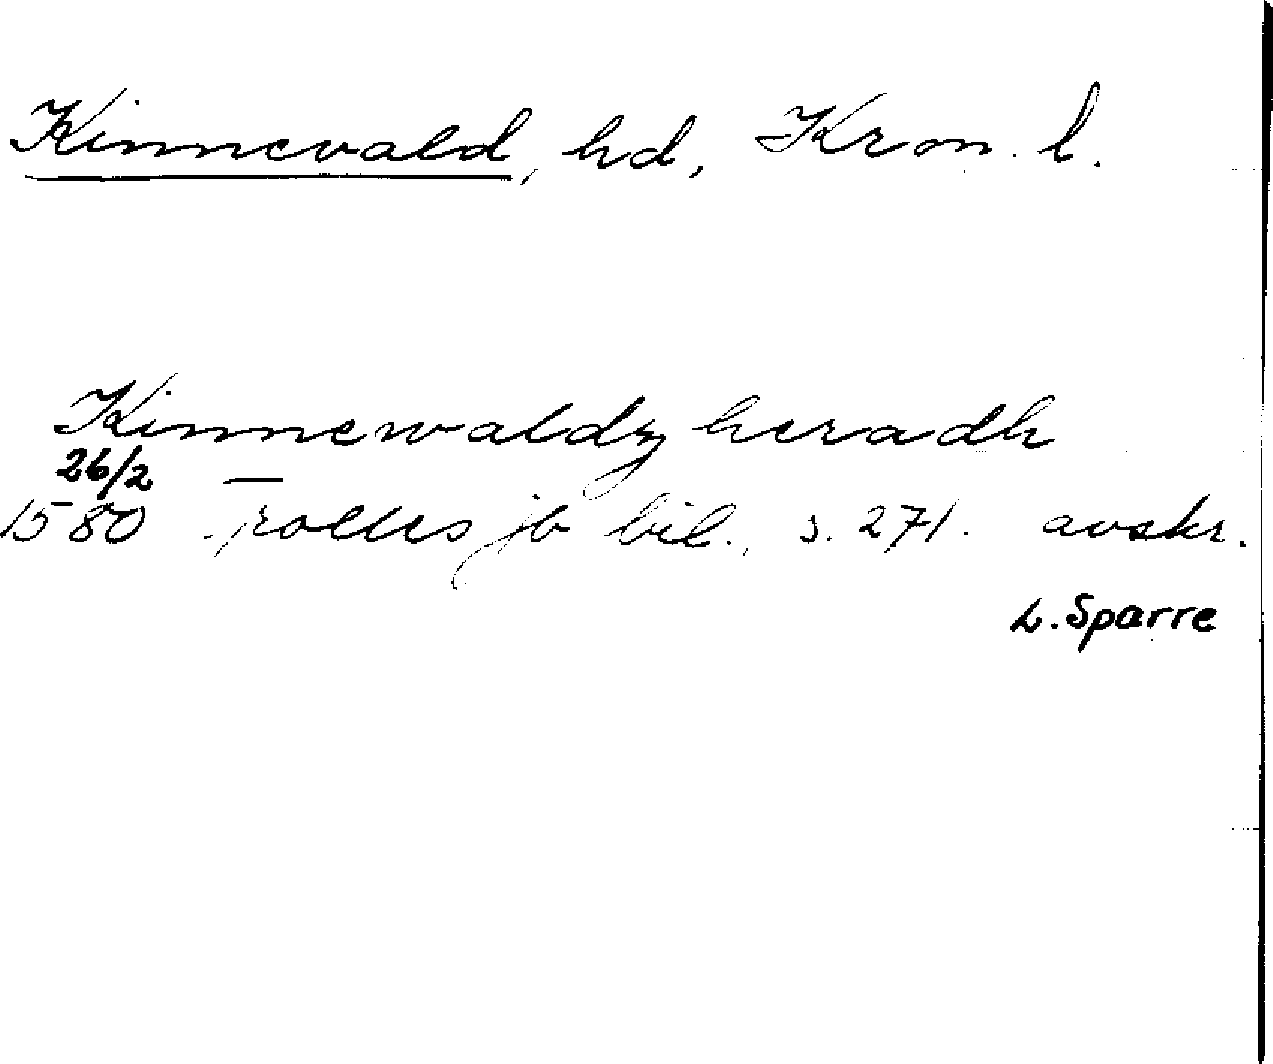 Kinnevald, hd, Kron. l.
Kinnewaldz heradh
26/2
1580 Trolles jb bil., s. 271. avskr.
L. Sparre